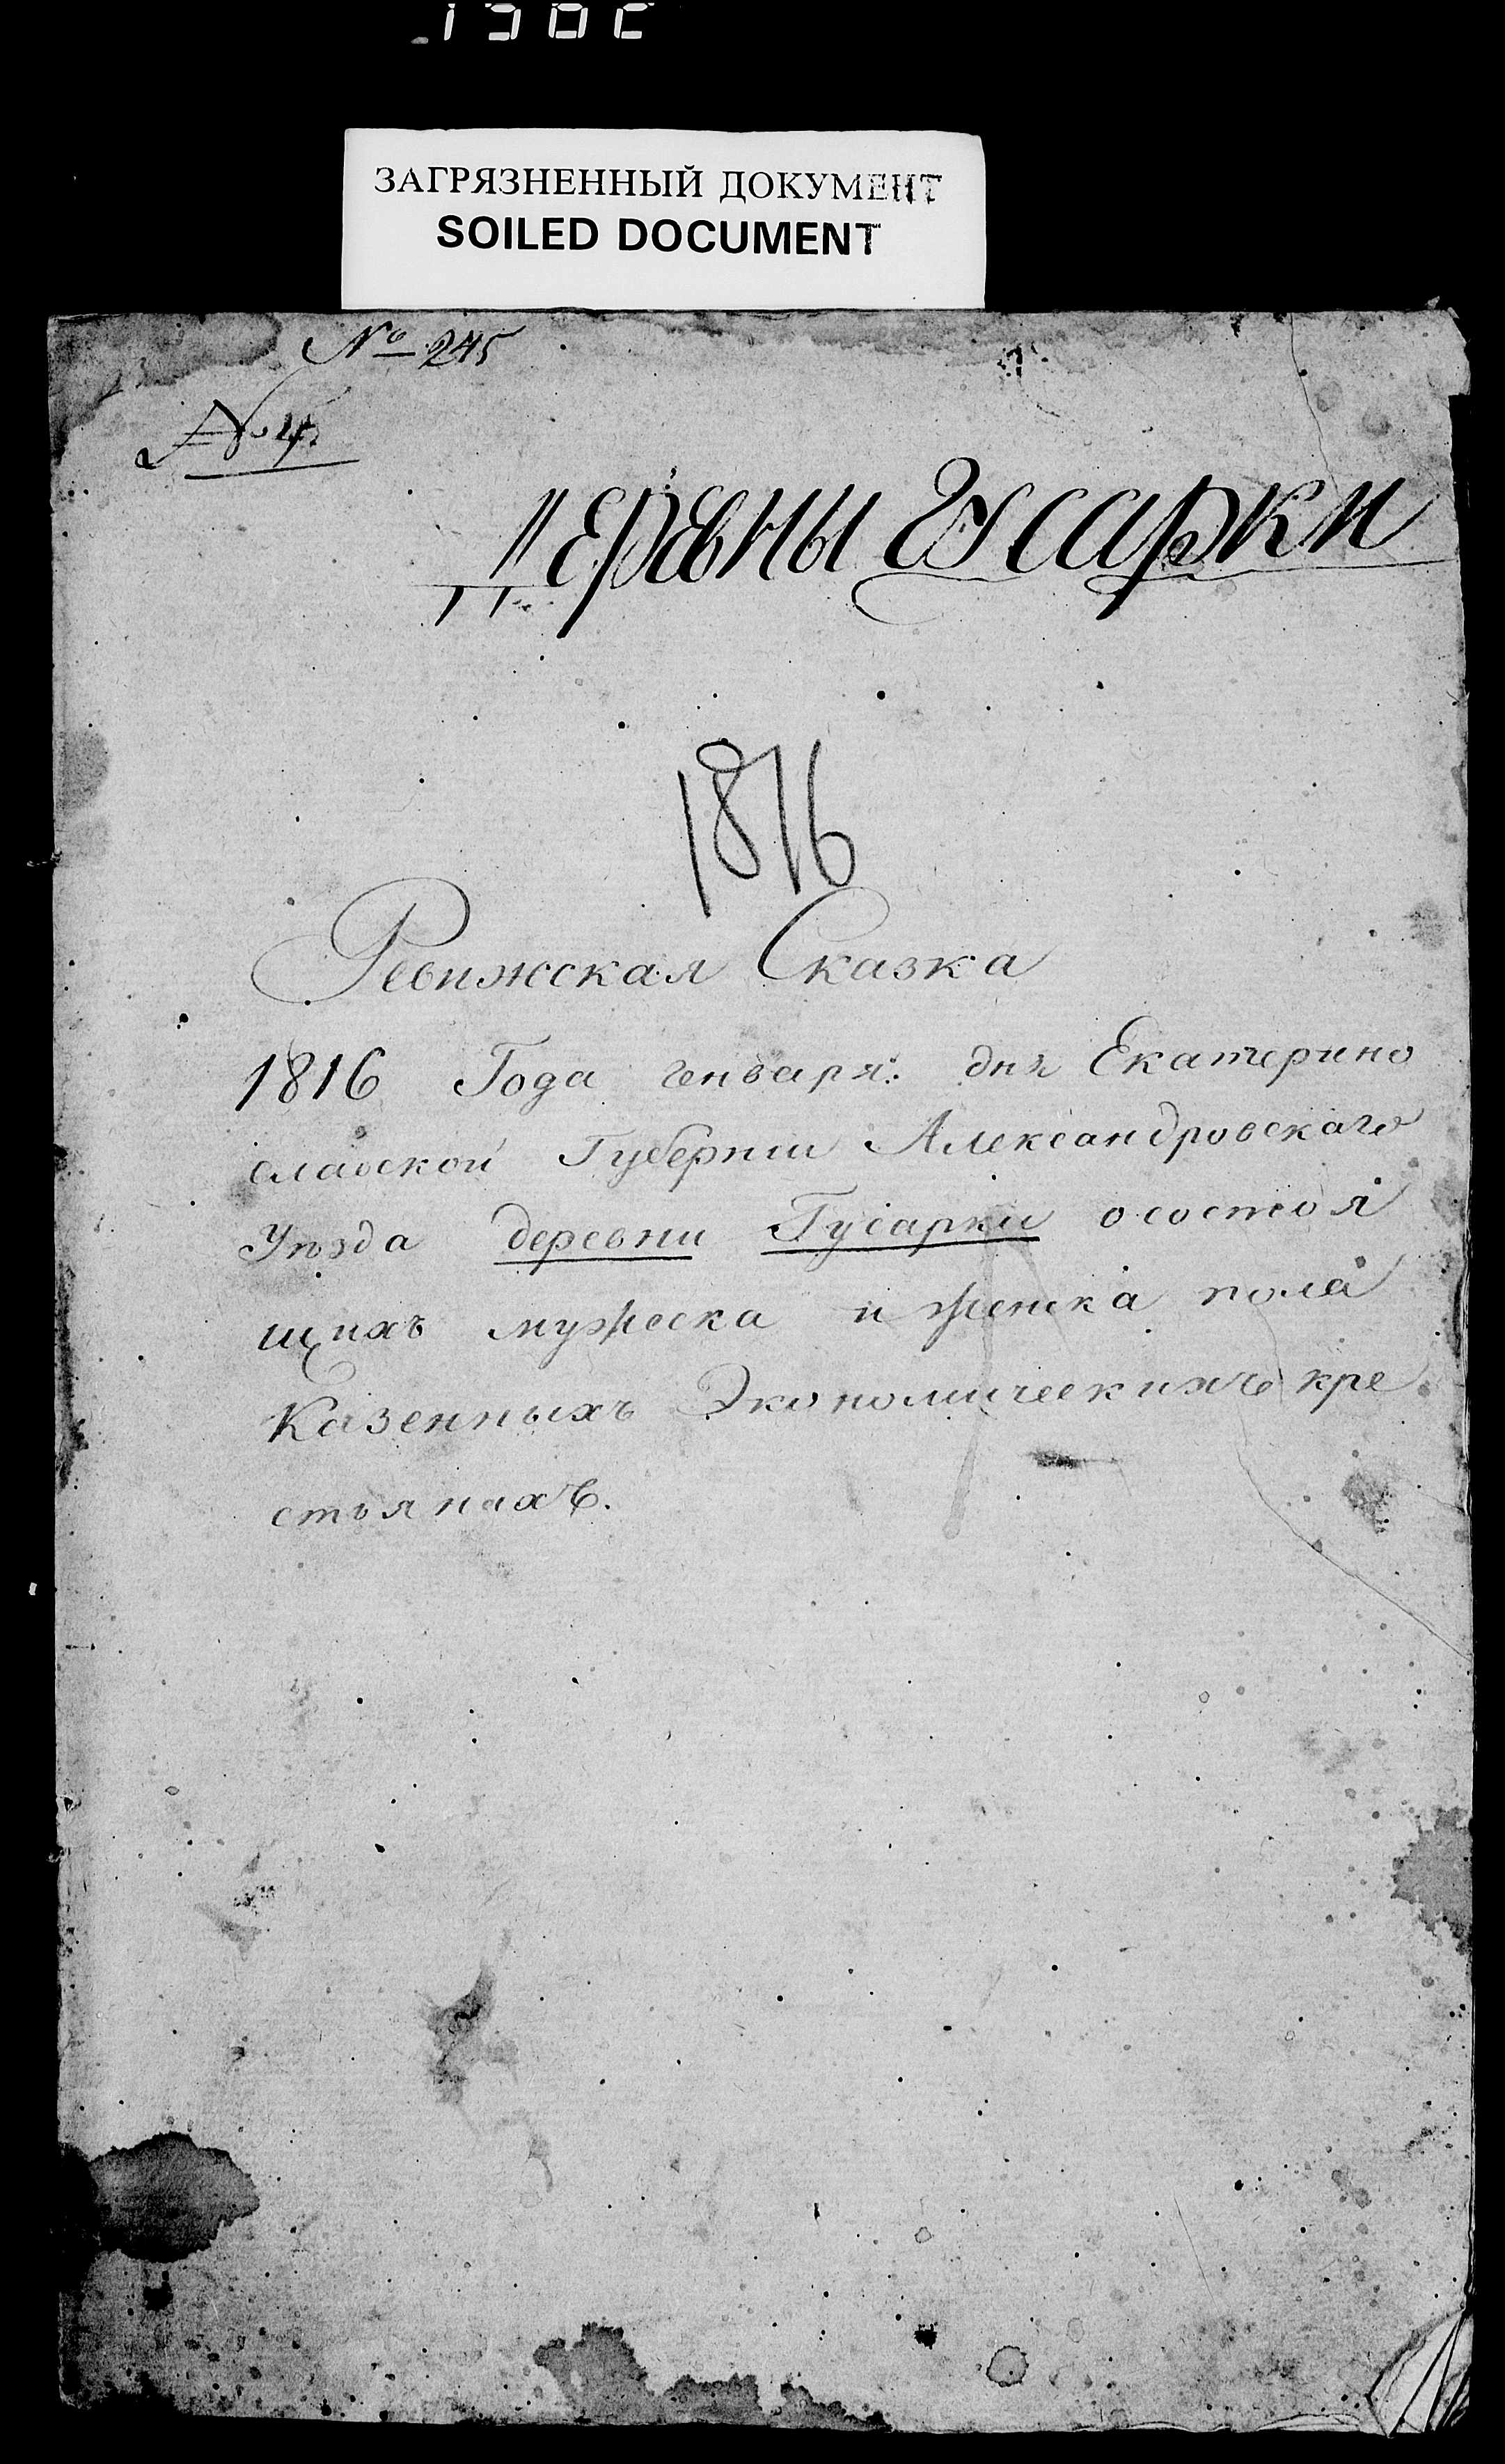 ЗАГРЯЗНЕННЫЙ ДОКУМЕНТ
SOILED DOCUMENT
№ 245
Деревны Гусарки
1816
Ревижская Сказка
1816 Года генваря: дня Екатерино
славской Губернии Александровскаго
Уѣзда деревни Гусарки о состоя
щихъ мужеска и женска пола
Казенныхъ Экономическихъ кре
стьянахъ.